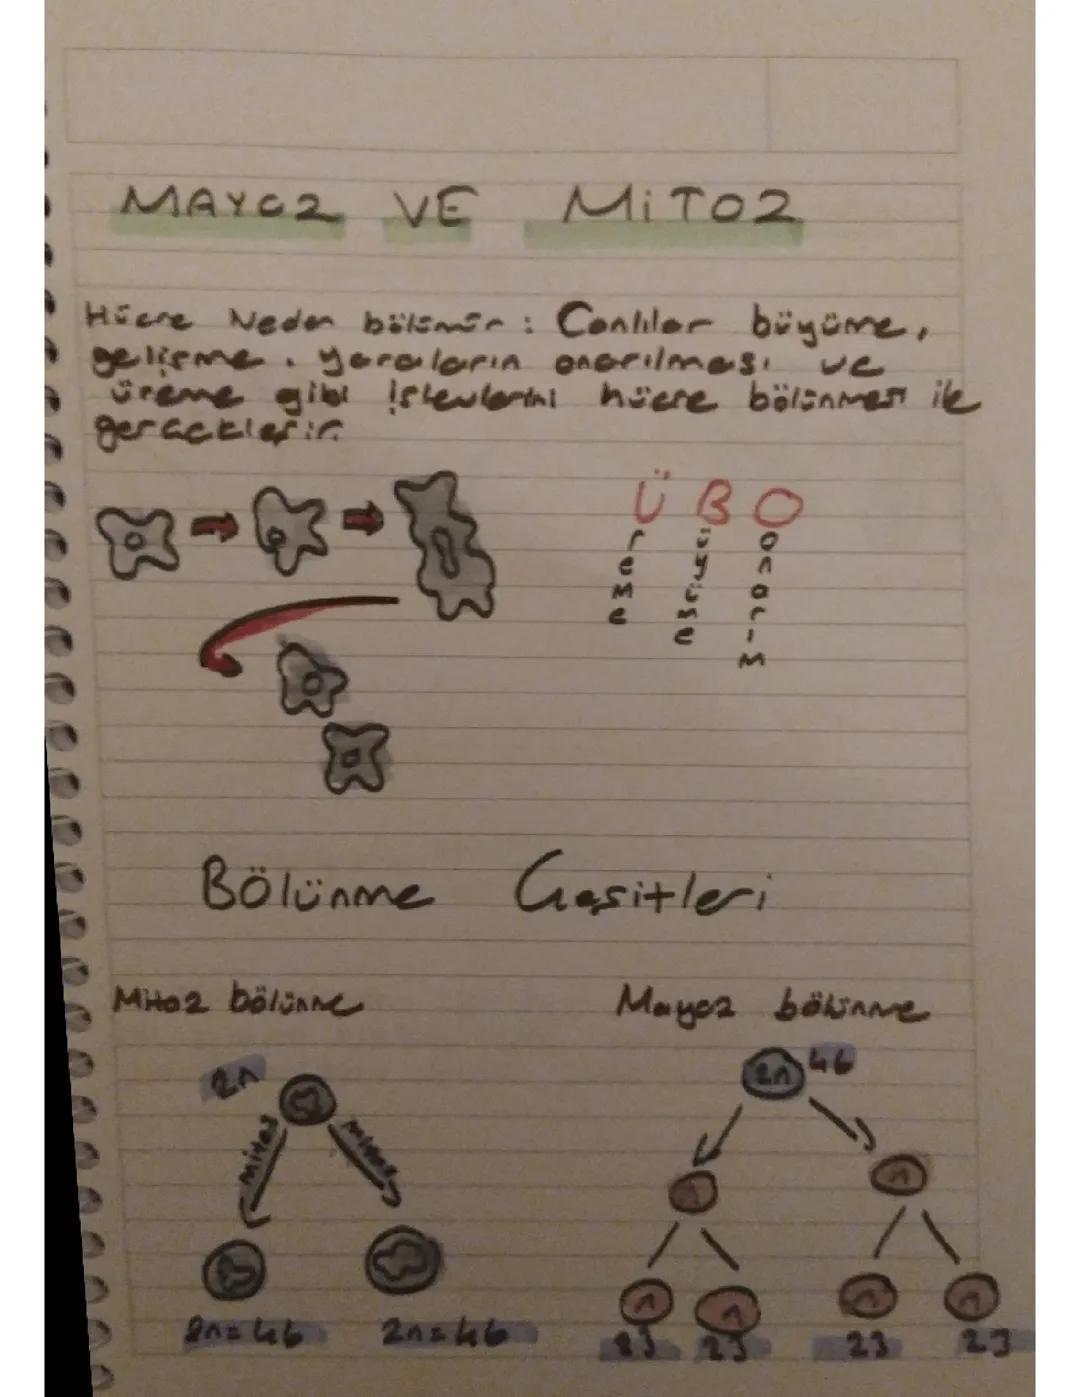 MAYOZ VE MİTOZ
Hücre Neden bölünür : Canlılar büyüme,
gelişme, yaraların onarılması ve
üreme gibi işlevlerini hücre bölünmesi ile
gerçekleşir.
Ü B O
reme
üyüme
onarım
Bölünme Çeşitleri
Mitoz bölünme
Mayoz bölünme
2n
2n 46
mitoz mitoz
n n
n n n n
2n=46 2n=46
23 23 23 23